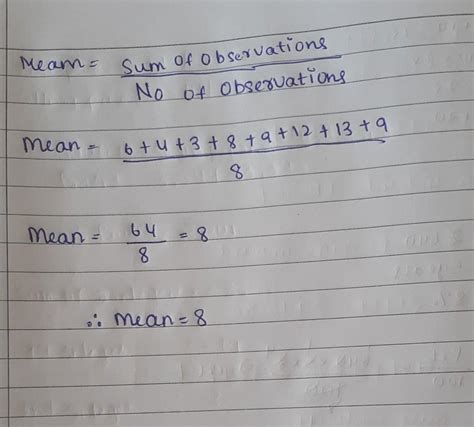 Mean = Sum of Observations
No of Observations
Mean = 6+4+3+8+9+12+13+9
8
Mean = 64
8
= 8
∴ Mean = 8